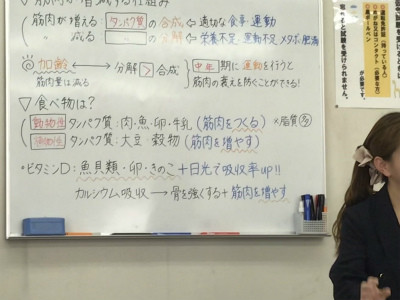 ▽筋肉が増減する仕組み
筋肉が増える：タンパク質の合成 ⇐ 適切な食事・運動
〃 減る： 〃 の分解 ⇐ 栄養不足、運動不足、メタボ、肥満
◎加齢 → 分解 > 合成
筋肉量は減る
中年期に運動を行うと
筋肉の衰えを防ぐことができる!
▽食べ物は?
動物性 タンパク質：肉・魚・卵・牛乳 (筋肉をつくる) ×脂質
植物性 タンパク質：大豆・穀物 (筋肉を増やす)
・ビタミンD：魚貝類・卵・きのこ + 日光で吸収率up!!
カルシウム吸収 → 骨を強くする + 筋肉を増やす
ると試験を受けられません。
が必要です。